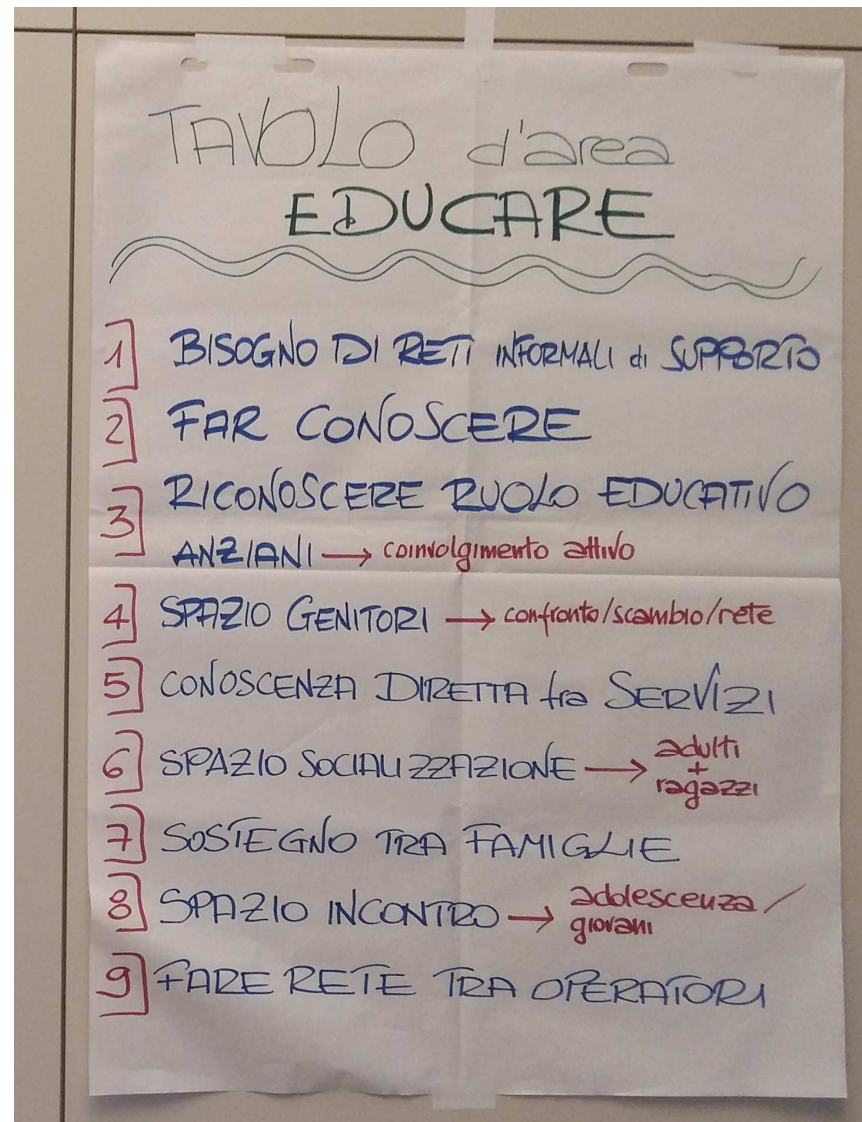 TAVOLO d'area
EDUCARE
1] BISOGNO DI RETI INFORMALI di SUPPORTO
2] FAR CONOSCERE
3] RICONOSCERE RUOLO EDUCATIVO
ANZIANI → coinvolgimento attivo
4] SPAZIO GENITORI → confronto/scambio/rete
5] CONOSCENZA DIRETTA fra SERVIZI
6] SPAZIO SOCIALIZZAZIONE → adulti
+
ragazzi
7] SOSTEGNO TRA FAMIGLIE
8] SPAZIO INCONTRO → adolescenza/
giovani
9] FARE RETE TRA OPERATORI